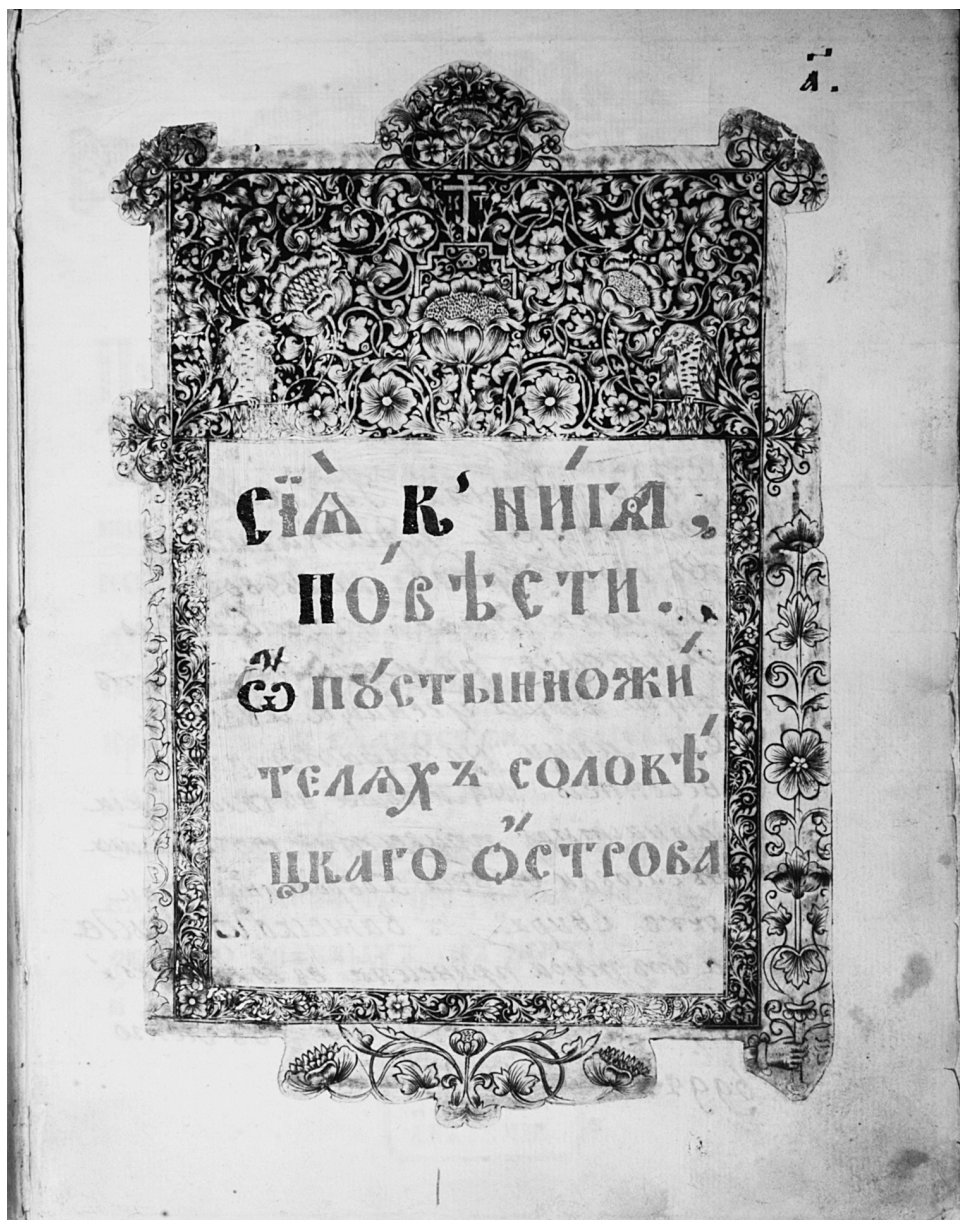 а҃.
сїѧ̀ к҆ни́гѧ,
по́вѣсти.
ѽ пꙋстынножи́
телѧхъ соловѣ́
цкаго ѻ҆строва